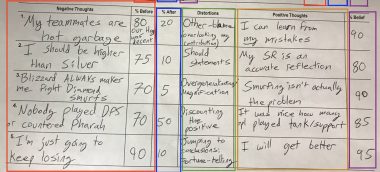 Negative Thoughts % Before % After Distortions Positive Thoughts % Belief
1. My teammates are hot garbage 80 20
Other-blame
I can learn from my mistakes 90
2. I should be higher than Silver 75 10
Should statements
My SR is an accurate reflection 80
3. Blizzard ALWAYS makes me fight Diamond smurfs 70 5
Overgeneralizing
Magnification
Smurfing isn't actually the problem 90
4. Nobody played DPS or countered Pharah 70 50
Discounting the positive
It was nice how many ppl played tank/support 85
5. I'm just going to keep losing 90 10
Jumping to conclusions: Fortune-telling
I will get better 95